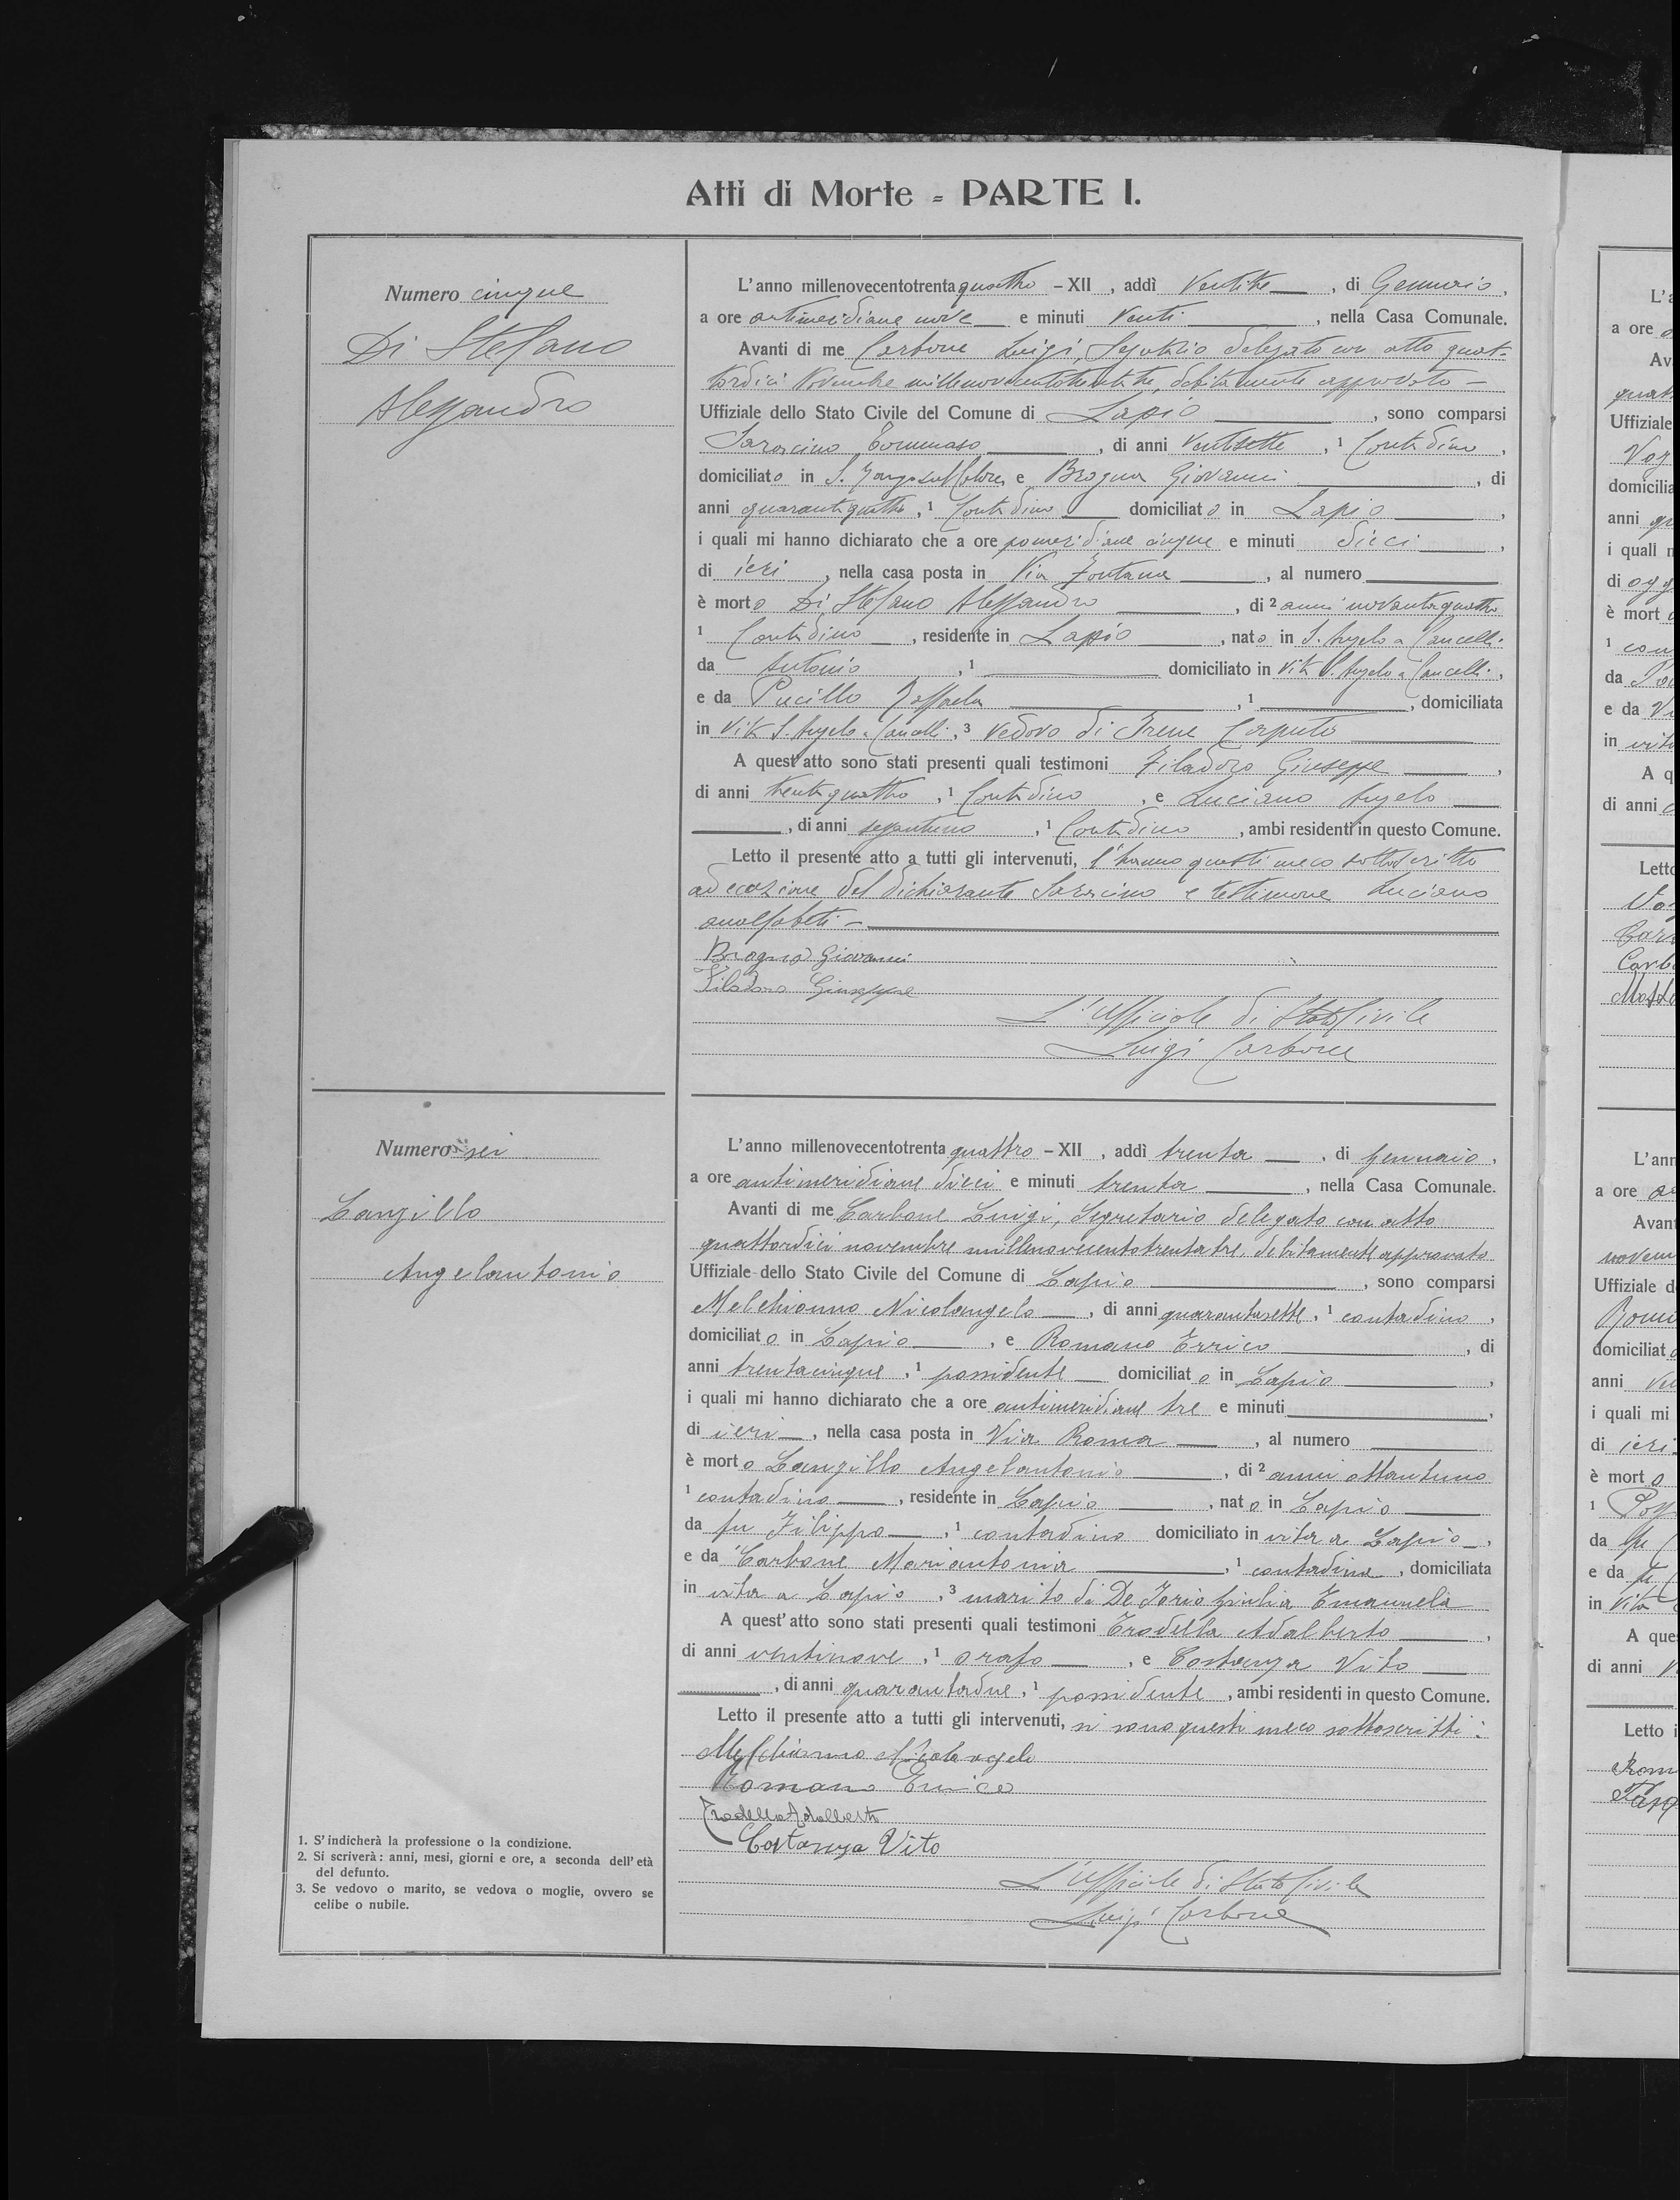 Atti di Morte = PARTE I.
Numero cinque
Di Stefano
Alessandro
L'anno millenovecentotrentaquattro – XII , addì Ventitre , di Gennaio ,
a ore antimeridiane nove e minuti Venti , nella Casa Comunale.
Avanti di me Carbone Luigi, Segretario delegato con atto quat-
tordici Novembre millenovecentotrentatre, debitamente approvato –
Uffiziale dello Stato Civile del Comune di Lapio , sono comparsi
Saroscino Tommaso , di anni Ventisette , 1 Contadino ,
domiciliato in S. Mango sul Calore, e Brogna Giovanni , di
anni quarantaquattro , 1 Contadino domiciliato in Lapio ,
i quali mi hanno dichiarato che a ore pomeridiane cinque e minuti dieci ,
di ieri , nella casa posta in Via Fontana , al numero
è morto Di Stefano Alessandro , di 2 anni novantaquattro
1 Contadino , residente in Lapio , nato in S. Angelo a Cancelli
da Antonio , 1 domiciliato in Vita S. Angelo a Cancelli ,
e da Pucillo Raffaela , 1 , domiciliata
in Vita S. Angelo a Cancelli , 3 Vedovo di Irene Caputo
A quest'atto sono stati presenti quali testimoni Filadoro Giuseppe ,
di anni trentaquattro , 1 Contadino , e Luciano Angelo
, di anni , 1 Contadino , ambi residenti in questo Comune.
Letto il presente atto a tutti gli intervenuti, l'hanno questi meco sottoscritto
ad eccezione del dichiarante Saroscino e testimone Luciano
analfabeti –
Brogna Giovanni
Filadoro Giuseppe
L'Ufficiale di Stato Civile
Luigi Carbone
Numero sei
Canzillo
Angelantonio
L'anno millenovecentotrentaquattro – XII , addì trenta , di gennaio ,
a ore antimeridiane dieci e minuti trenta , nella Casa Comunale.
Avanti di me Carbone Luigi, Segretario delegato con atto
quattordici novembre millenovecentotrentatre, debitamente approvato
Uffiziale dello Stato Civile del Comune di Lapio , sono comparsi
Melchionno Nicolangelo , di anni quarantasette , 1 contadino ,
domiciliato in Lapio , e Romano Errico , di
anni trentacinque , 1 possidente domiciliato in Lapio ,
i quali mi hanno dichiarato che a ore antimeridiane tre e minuti ,
di ieri , nella casa posta in Via Roma , al numero
è morto Canzillo Angelantonio , di 2 anni ottantuno
1 contadino , residente in Lapio , nato in Lapio
da fu Filippo , 1 contadino domiciliato in vita a Lapio ,
e da Carbone Mariantonia , 1 contadina , domiciliata
in vita a Lapio , 3 marito di De Iorio Giulia Emanuela
A quest'atto sono stati presenti quali testimoni Trodella Adalberto ,
di anni ventinove , 1 orafo , e Costanza Vito
, di anni quarantadue , 1 possidente , ambi residenti in questo Comune.
Letto il presente atto a tutti gli intervenuti, si sono questi meco sottoscritti :
Melchionno Nicolangelo
Romano Errico
Trodella Adalberto
Costanza Vito
L'Ufficiale di Stato Civile
Luigi Carbone
1. S'indicherà la professione o la condizione.
2. Si scriverà : anni, mesi, giorni e ore, a seconda dell'età
del defunto.
3. Se vedovo o marito, se vedova o moglie, ovvero se
celibe o nubile.